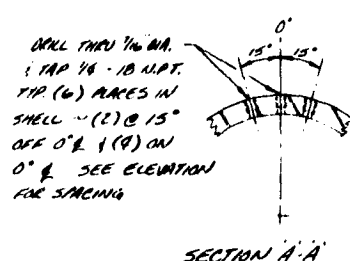 DRILL THRU 7/16 DIA.
& TAP 1/4 - 18 N.P.T.
TYP. (6) PLACES IN
SHELL ~ (2) @ 15°
OFF 0° ℄ & (4) ON
0° ℄ SEE ELEVATION
FOR SPACING
0°
15° 15°
SECTION 'A'-'A'